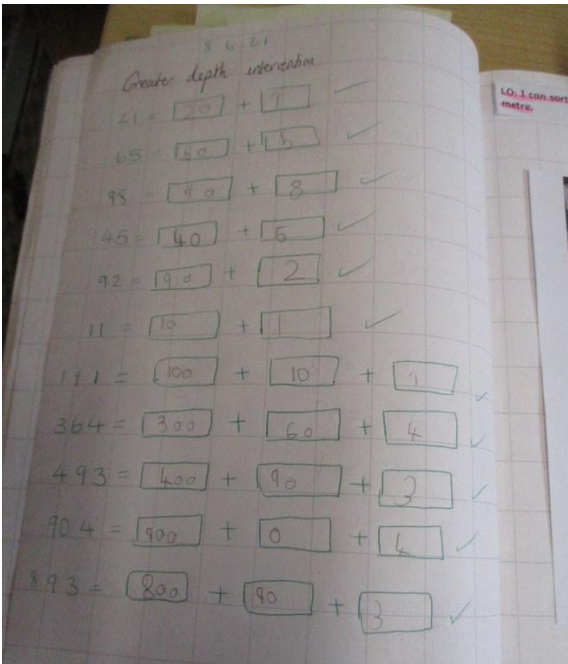 8 6 21
Greater depth intervention
21 = 20 + 1
65 = 60 + 5
98 = 90 + 8
45 = 40 + 5
92 = 90 + 2
11 = 10 + 1
111 = 100 + 10 + 1
364 = 300 + 60 + 4
493 = 400 + 90 + 3
904 = 900 + 0 + 4
893 = 800 + 90 + 3
LO: I can sort
metre.